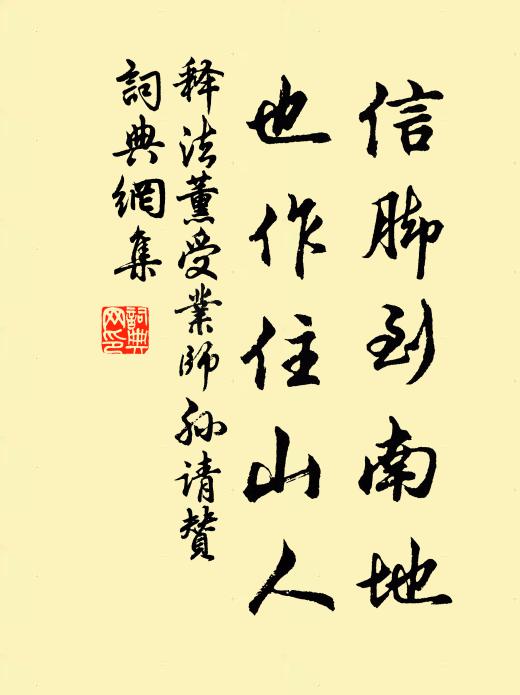 信脚到南地
也作住山人
释法薰受業師孙请赞
詞典網集
詞典网印